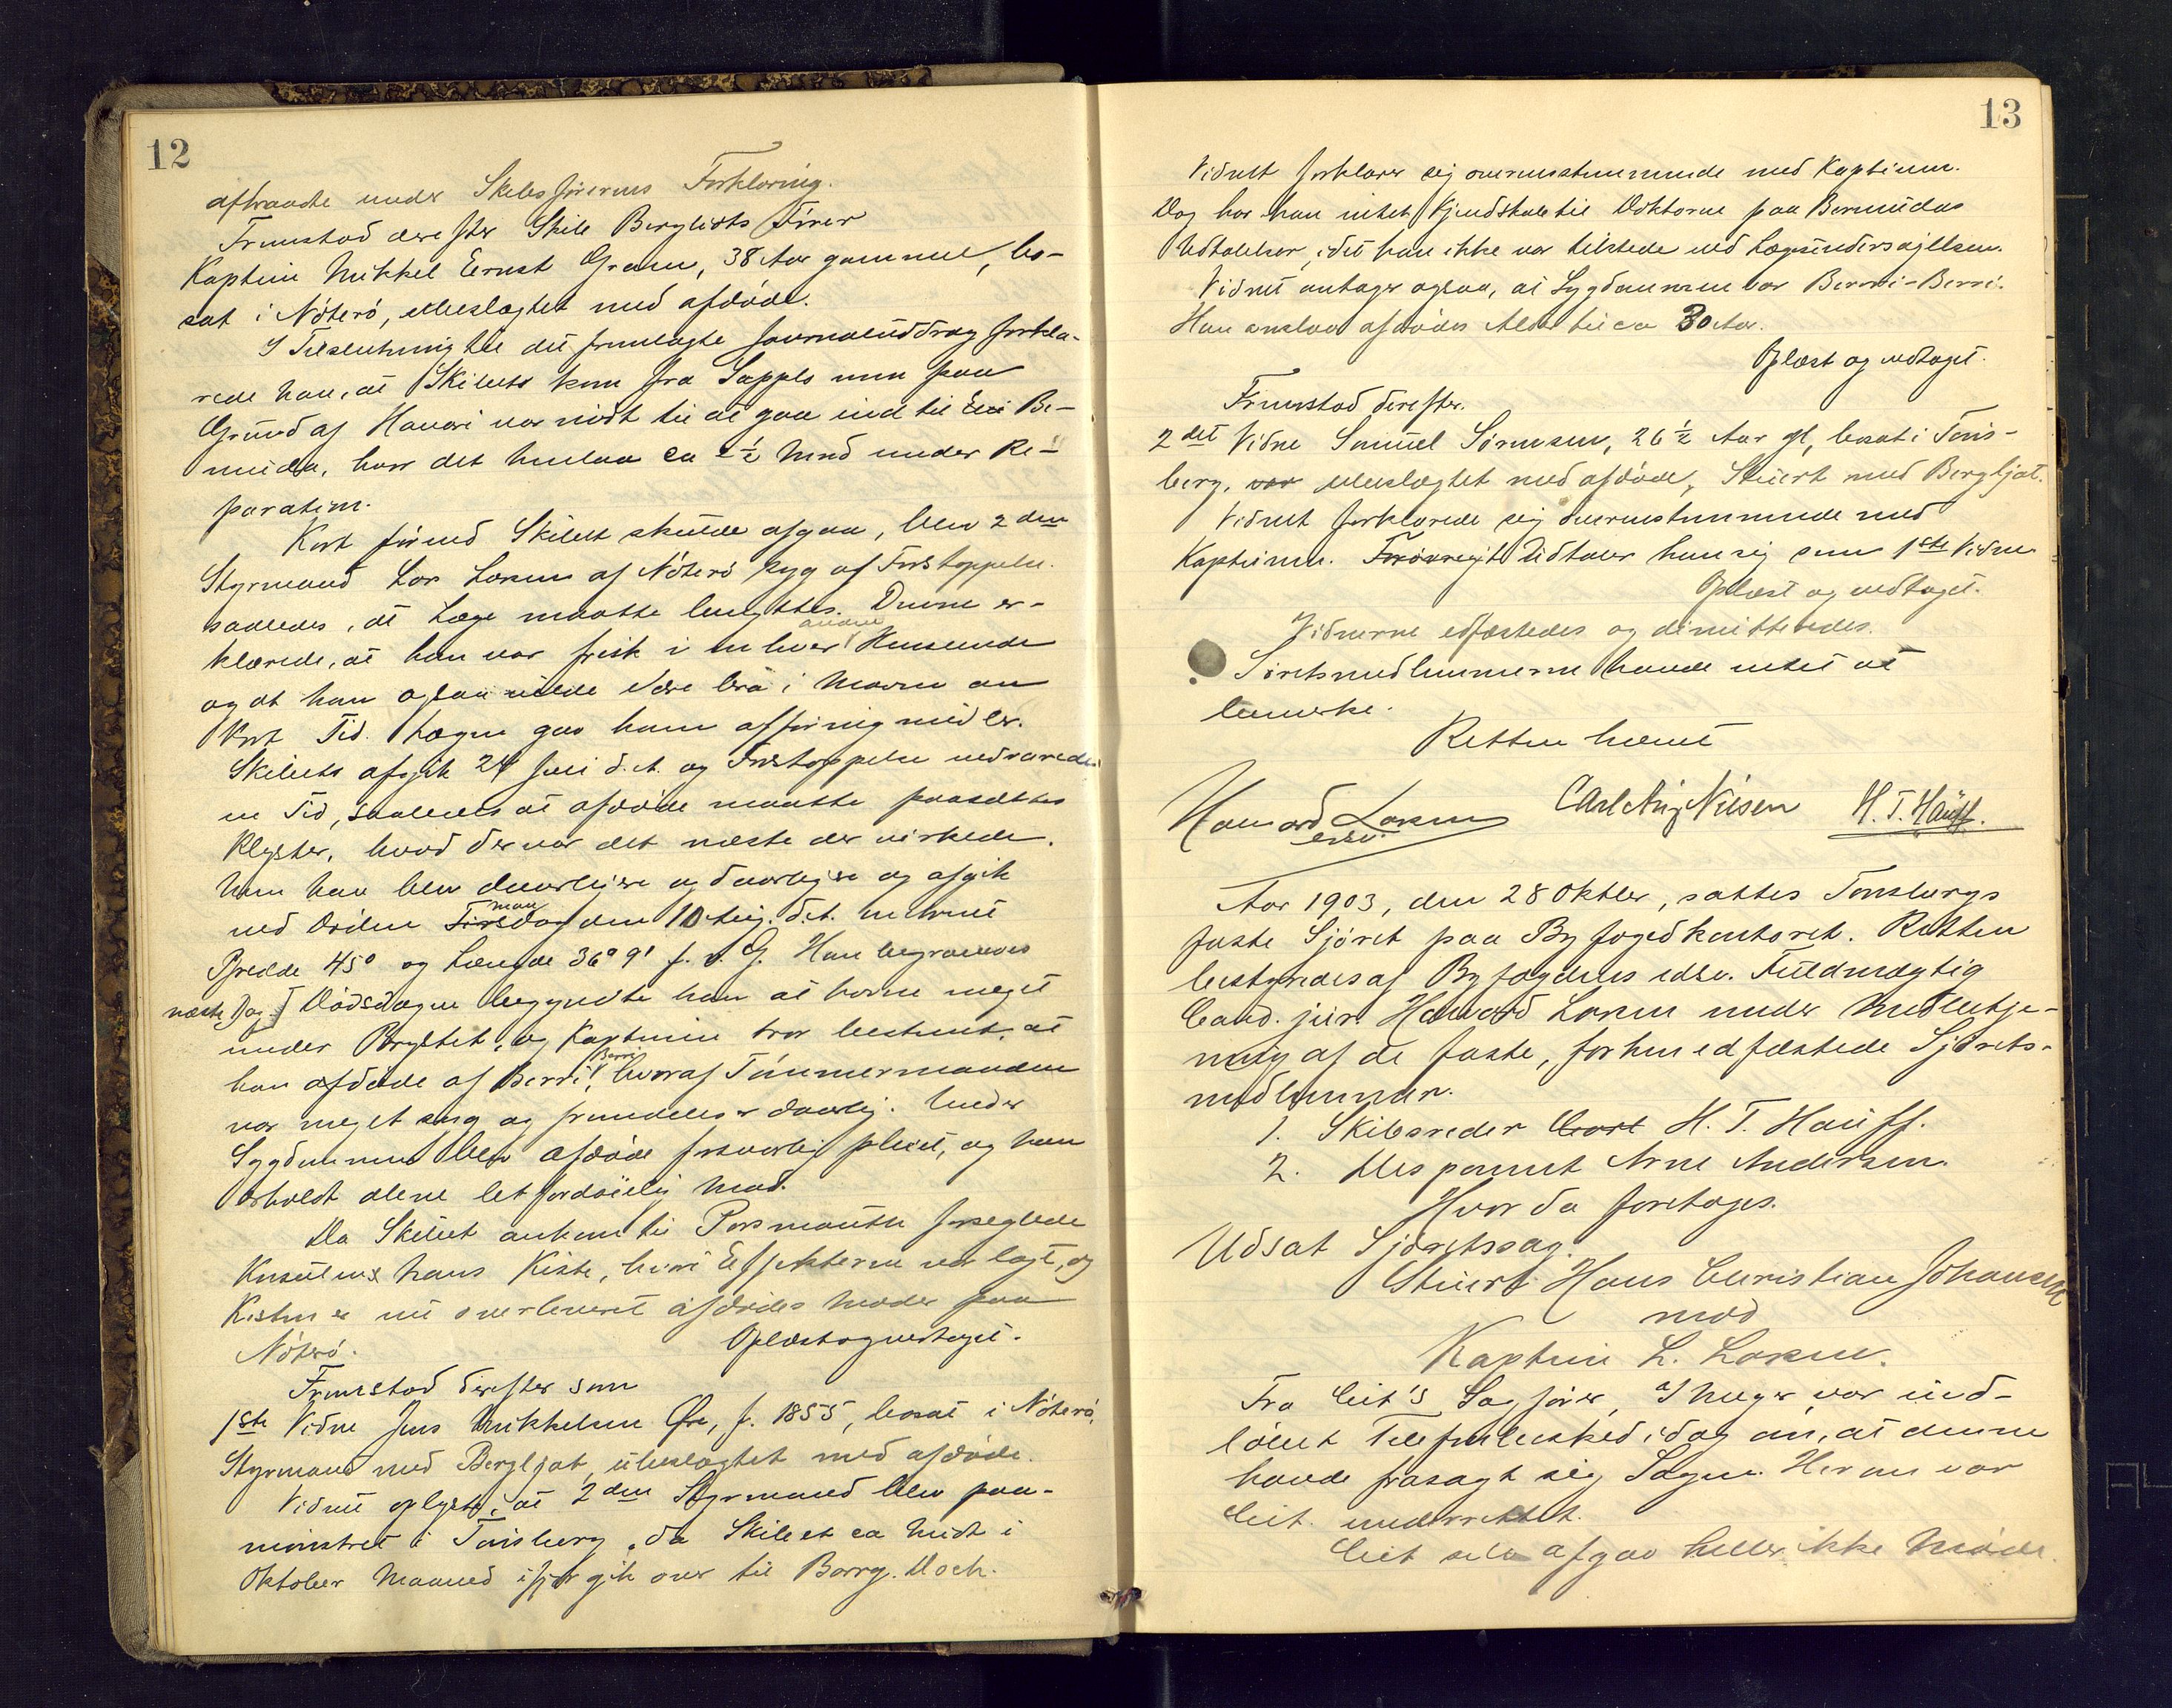 12
aftraadte under Skibsførerens Forklaring.
Fremstod derefter Skib Bergliots Fører
Kaptein Mikkel Ernst Gram, 38 Aar gammel, bo-
sat i Nøterø, ubeslægtet med afdøde.
I Tilslutning til det fremlagte Journaluddrag forkla-
rede han, at Skibet kom fra Sappelo men paa
Grund af Havari var nødt til at gaa ind til Be-
muda, hvor det henlaa ca 2½ Mnd under Re-
paration.
Kort førend Skibet skulde afgaa, blev 2den
Styrmand Lar Larsen af Nøterø syg af Forstoppelse.
saaledes, at Læge maatte benyttes. Denne er-
klærede, at han var frisk i enhver anden Henseende
og at han ogsaa vilde være bra i Maven om
kort Tid. Lægen gav ham afføringsmidler.
Skibets afgik 24 Juli d.A. og Forstoppelsen vedvarede
en Tid, saaledes at afdøde maatte paasættes
Klyster, hvad der var det næste der virkede.
Men han blev daarligere og daarligere og afgik
ved Døden Tirsdag man den 10 Aug. d.A. ombord
Bredde 45° og Længde 36° 9' f. v. G. Han begravedes
næste Dag. Dødsdagen begyndte han at hovne meget
under Brystet, og Kapteinen tror bestemt, at
han afdøde af Berri Berri, hvoraf Tømmermanden
var meget syg og fremdeles er daarlig. Under
Sygdommen blev afdøde forsvarlig pleiet, og han
erholdt alene let fordøielig Mad.
Da Skibet ankom til Porsmouth forseglede
Konsulens hans Kiste, hvori Effekterne var lagt, og
Kisten er nu overleveret afdødes Moder paa
Nøterø. Oplæst og vedtaget.
Fremstod derefter som
1ste Vidne Jens Mikkelsen Øre, f. 1855, bosat i Nøterø,
Styrmand med Bergljot, ubeslægtet med afdøde.
Vidnet oplyste, at 2den Styrmand blev paa-
mønstret i Tønsberg, da Skibet ca Midt i
Oktober Maaned ifjor gik over til Barry Dock.
13
Vidnet forklarer sig overensstemmende med Kapteinen.
Dog har han intet Kjendskab til Doktorne paa Bermudas
Udtalelser, idet han ikke var tilstede ved Lægeundersøgelsen.
Vidnet antager ogsaa, at Sygdommen var Berri-Berri.
Han anslaar afdødes Alder til ca 30 Aar.
Oplæst og vedtaget.
Fremstod derefter.
2det Vidne Samuel Sørensen, 26½ Aar gl, bosat i Tøns-
berg, var ubeslægtet med afdøde, Stuert med Bergljot.
Vidnet forklarede sig overensstemmende med
Kapteinen. Forøvrigt Udtaler han sig som 1ste Vidne
Oplæst og vedtaget.
Vidnerne edfæstedes og dimitteredes.
Søretsmedlemmerne havde intet at
bemerke.
Retten hævet
Havard Larsen Carl Aug Nilsen H. T. Hauff.
edsv.
Aar 1903, den 28 Oktber, sattes Tønsbergs
faste Sjøret paa Byfogedkontoret. Retten
bestyredes af Byfogdens edsv. Fuldmægtig
Cand. jur. Havard Larsen under Medbetje-
ning af de faste, forhen edfæstede Sjørets-
medlemmer.
1. Skibsreder Carl H. T. Hauff.
2. Dispaanent Arne Andersen.
Hvor da foretoges.
Udsat Sjøretssag:
Stuert Hans Christian Johansen
mod
Kaptein L. Larsen.
Fra Cit's Sagfører, var ind-
løbet Telefonbesked idag om, at denne
havde frasagt sig Sagen. Herom var
Cit. underrettet.
Cit selv afgav heller ikke Møde.